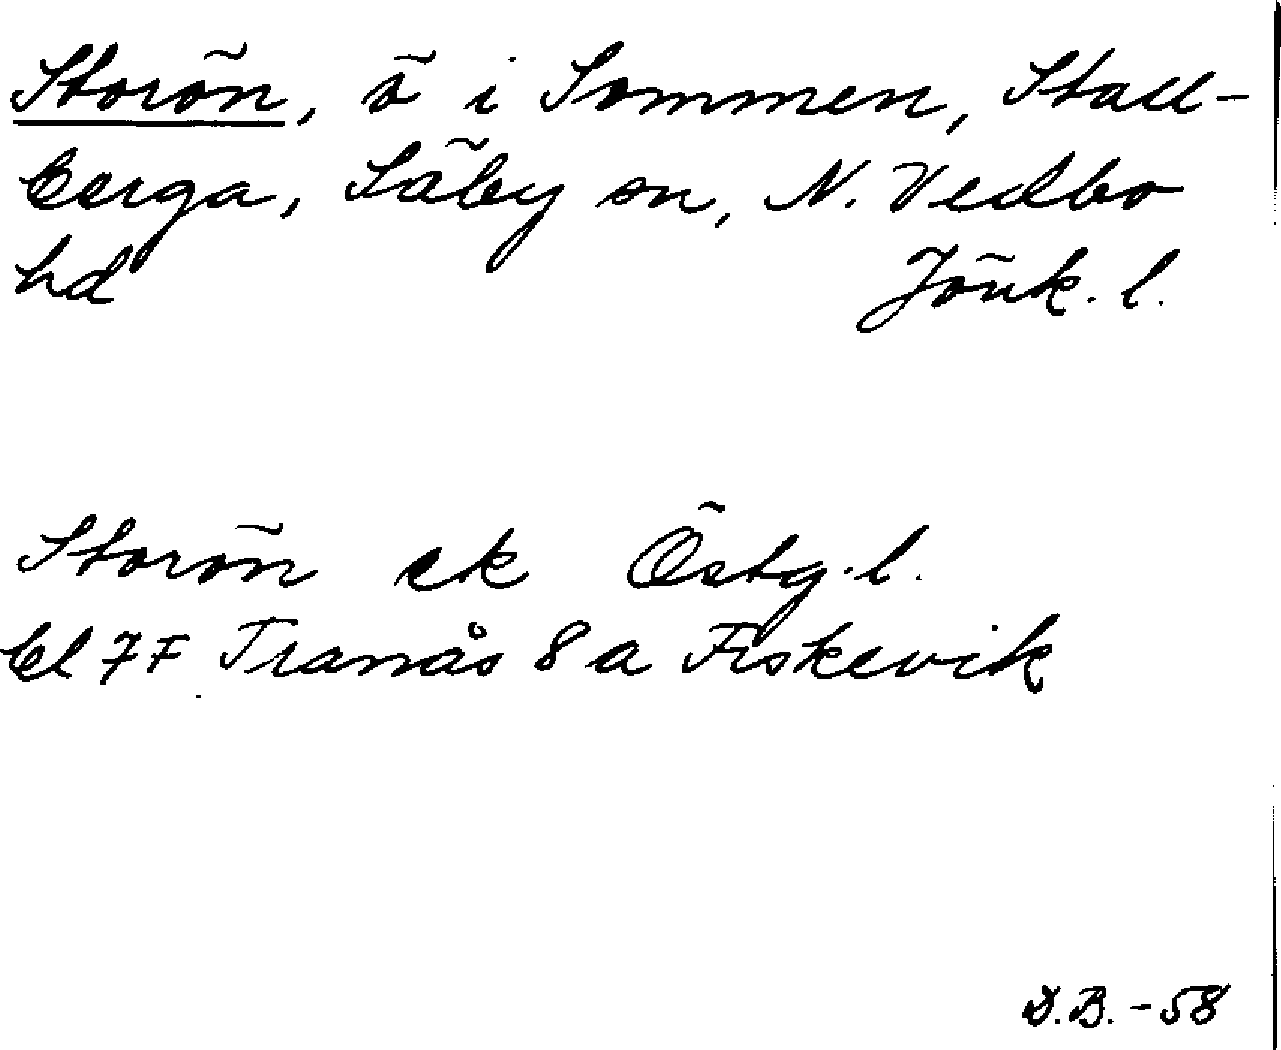 Storön, ö i Sommen, Stall-
berga, Säby sn, N. Vedbo
hd Jönk. l.
Storön ek Östg. l.
bl 7F Tranås 8 a Fiskevik
D.B. - 58